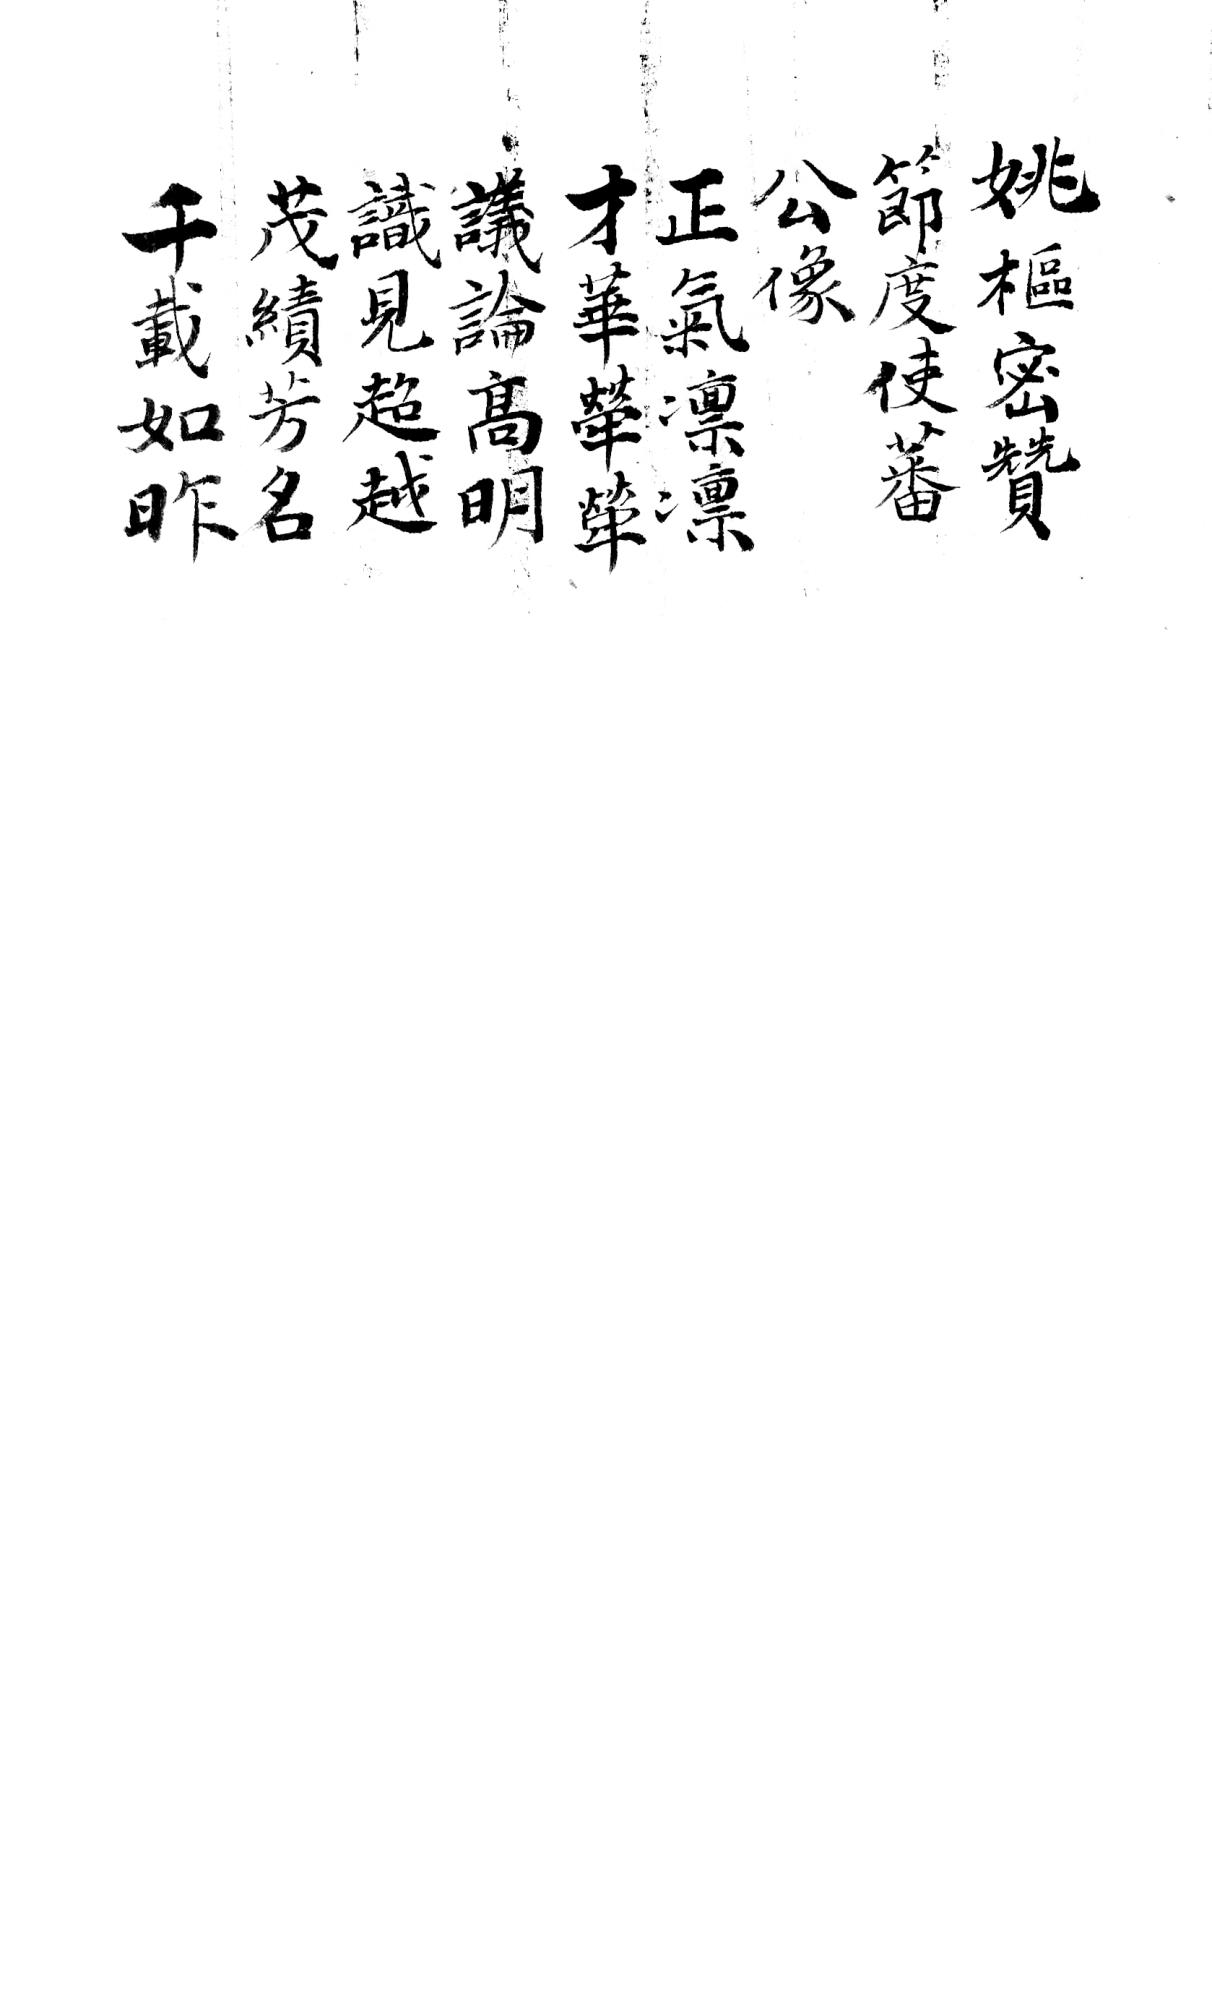 姚樞密贊
節度使蕃
公像
正氣凛凛
才華犖犖
議論高明
識見超越
茂績芳名
千載如昨